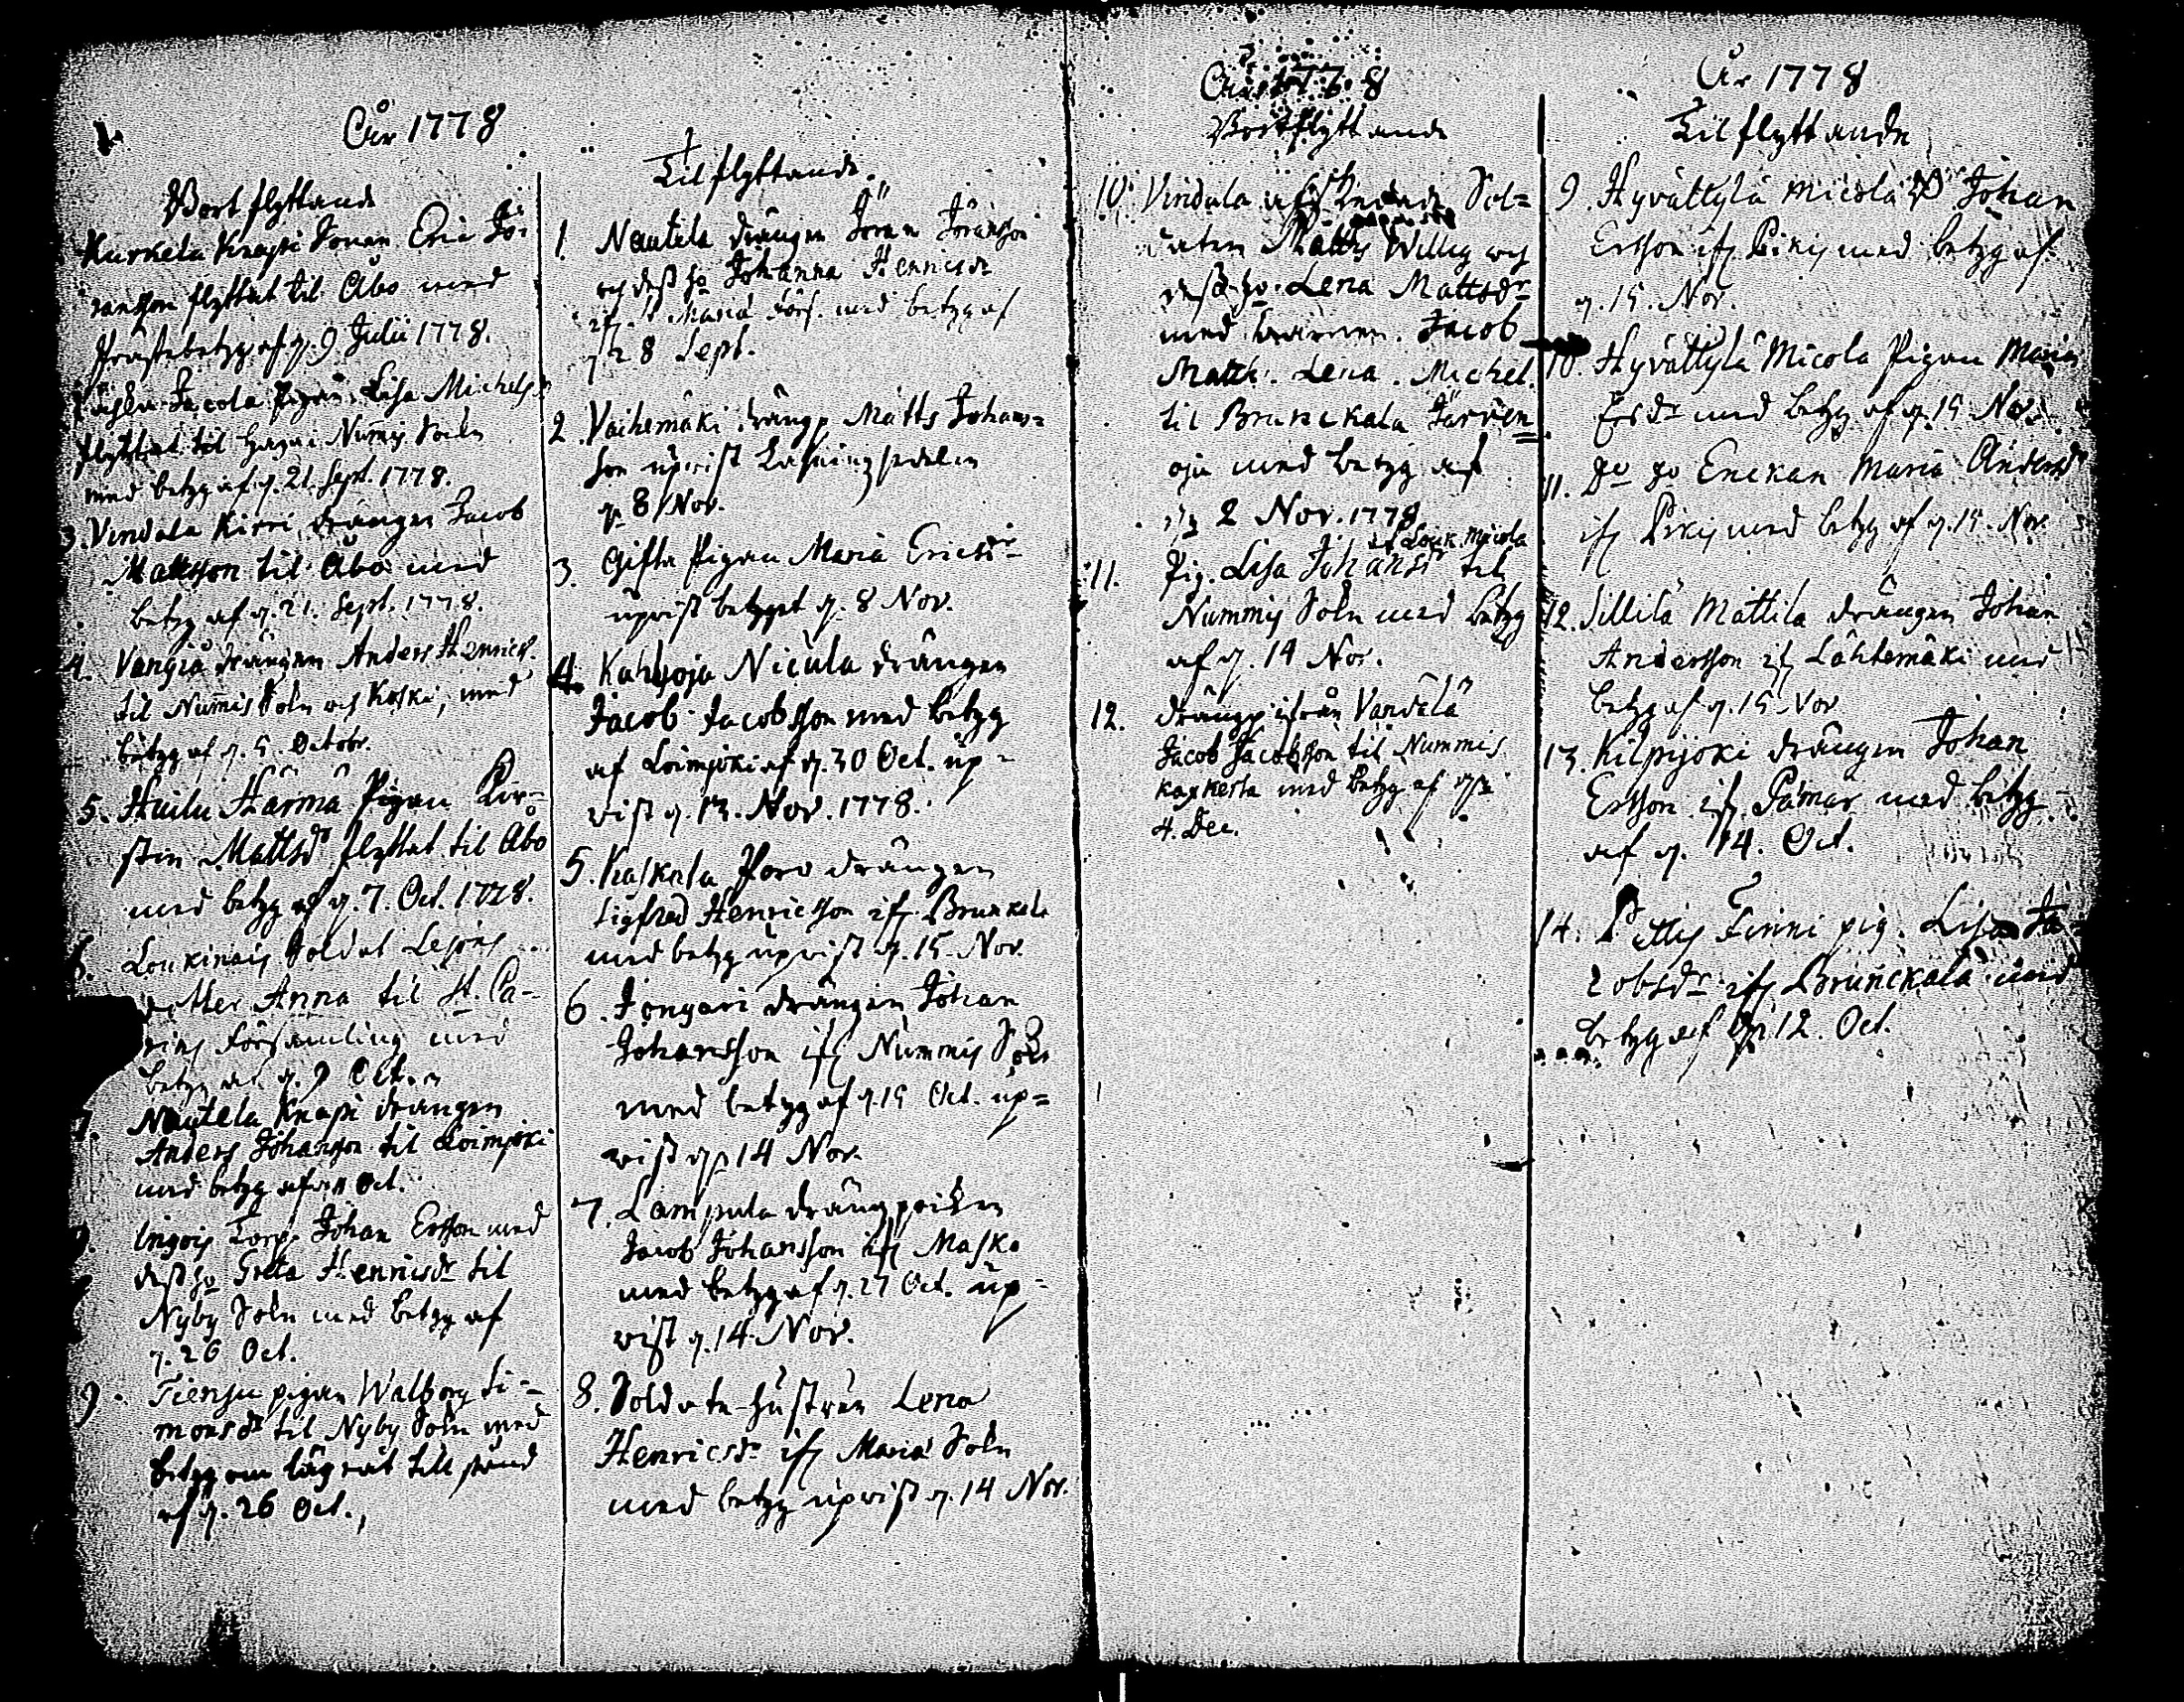 År 1778
Bortflyttande
Kurkela Knapi Sonen Eric Jö-
ransson flyttat til Åbo med
Prästebetyg af d. 9 Julii 1778.
Jacola Pigan Lisa Michelsdr
flyttat til Nummis Soken
med betyg af d. 21. Sept. 1778.
3. Vendala Kirri drängen Jacob
Mattsson til Åbo med
betyg af d. 21. Sept. 1778.
4. Vangiä drängen Anders Henrics.
til Nummis Sokn och Koski, med
betyg af d. 5. Octobr.
5. Huilu Härmä Pigan Kir-
stin Mattsdr flyttat til Åbo
med betyg af d. 7. Oct. 1778.
6. Loukinais Soldat
dotter Anna til St. Ca-
rins Församling med
betyg af d. 9 Oct.
7. Nautela Knapi drängen
Anders Johansson til Loimjoki
med betyg af Oct.
Ingois Torp. Johan Ersson med
dess ho Greta Henricsdr til
Nyby Sokn med betyg af
d. 26 Oct.
9. Tiensu pigan Walborg Si-
monsdr til Nyby Sokn med
betyg om lägrat till stånd
af d. 26 Oct.
Tilflyttande.
1. Nautela drängen Jöran Jöransson
och dess ho Johanna Henricsdr
ifr. St Mariä Förs. med betyg af
d 28 Sept.
2. Vaihemäki drängen Matts Johans-
son upvist Läsningssedelen
d. 8 Nov.
3. Gifta Pigan Maria Ericsdr
upvist betyget d. 8 Nov.
4. Kahyoja Nicula drängen
Jacob Jacobsson med betyg
af Loimjoki af d. 30 Oct. up-
vist d. 13. Nov. 1778.
5. Kaskala Poro drängen
Sigfred Henricsson ifr. Brunkala
med betyg upvist d. 15. Nov.
6. Jongari drängen Johan
Johansson ifr Nummis Sokn
med betyg af d. 15 Oct. up-
vist d. 14 Nov.
7. Lampula drängpoiken
Jacob Johansson ifr Masko
med betyg af d. 27 Oct. up-
vist d. 14. Nov.
8. Soldate-hustrun Lena
Henricsdr ifr Mariä Sokn
med betyg upvist d. 14 Nov.
År 1778
Bortflyttande
10. Vindala Sol-
daten Matts Willig och
dess ho Lena Mattsdr
med barnen. Jacob
Matth. Lena. Michel.
til Brunckala Järven
oja med betyg af
d. 2 Nov. 1778
af Louk. Micola
11. Pig. Lisa Johansdr til
Nummis Sokn med betyg
af d. 14 Nov.
12. drängen ifrån Vandala
Jacob Jacobsson til Nummis
Kaxkerta med betyg af d.
4. Dec.
År 1778
Tilflyttande
9. Hyvättylä Micola Dr Johan
Ersson ifr Pikis med betyg af
d. 15. Nov.
10. Hyvättylä Micola Pigan Maria
Ersdr med betyg af d. 15 Nov.
11. Do do Enckan Maria Andersdr
ifr Pikis med betyg af d. 15. Nov.
12. Sillilä Mattila drängen Johan
Andersson ifr Lähtemäki med
betyg af d. 15. Nov
13. Kilpijoki drängen Johan
Ersson ifr Pämar med betyg
af d. 14. Oct.
14. Pettis Finni pig. Lisa Ja-
cobsdr ifr Brunckala med
betyg af d. 12. Oct.